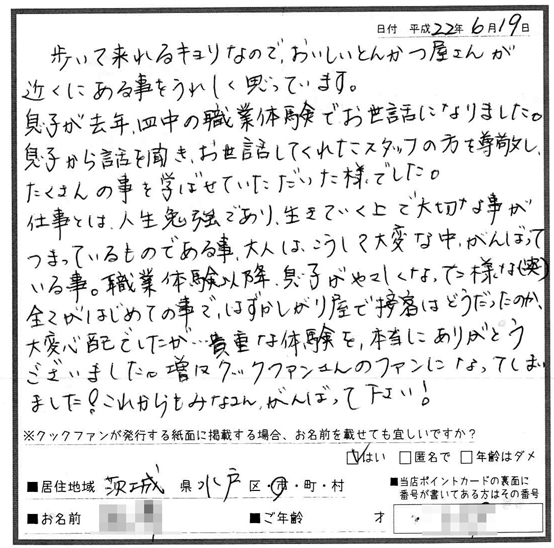 日付 平成22年6月19日
歩いて来れるキョリなので、おいしいとんかつ屋さんが
近くにある事をうれしく思っています。
息子が去年、四中の職業体験でお世話になりました。
息子から話を聞き、お世話してくれたスタッフの方を尊敬し、
たくさんの事を学ばせていただいた様でした。
仕事とは、人生勉強であり、生きていく上で大切な事が
つまっているものである事、大人は、こうして大変な中、がんばって
いる事。職業体験以降、息子がやさしくなった様な(笑)
全てがはじめての事で、はずかしがり屋で接客はどうだったのか、
大変心配でしたが…貴重な体験を、本当にありがとう
ございました。増々クックファンさんのファンになってしまい
ました!これからもみなさん、がんばって下さい!
※クックファンが発行する紙面に掲載する場合、お名前を載せても宜しいですか？
☑はい □匿名で □年齢はダメ
■居住地域 茨城 県 水戸 区・市・町・村
■当店ポイントカードの裏面に
番号が書いてある方はその番号
■お名前 ■ご年齢 才